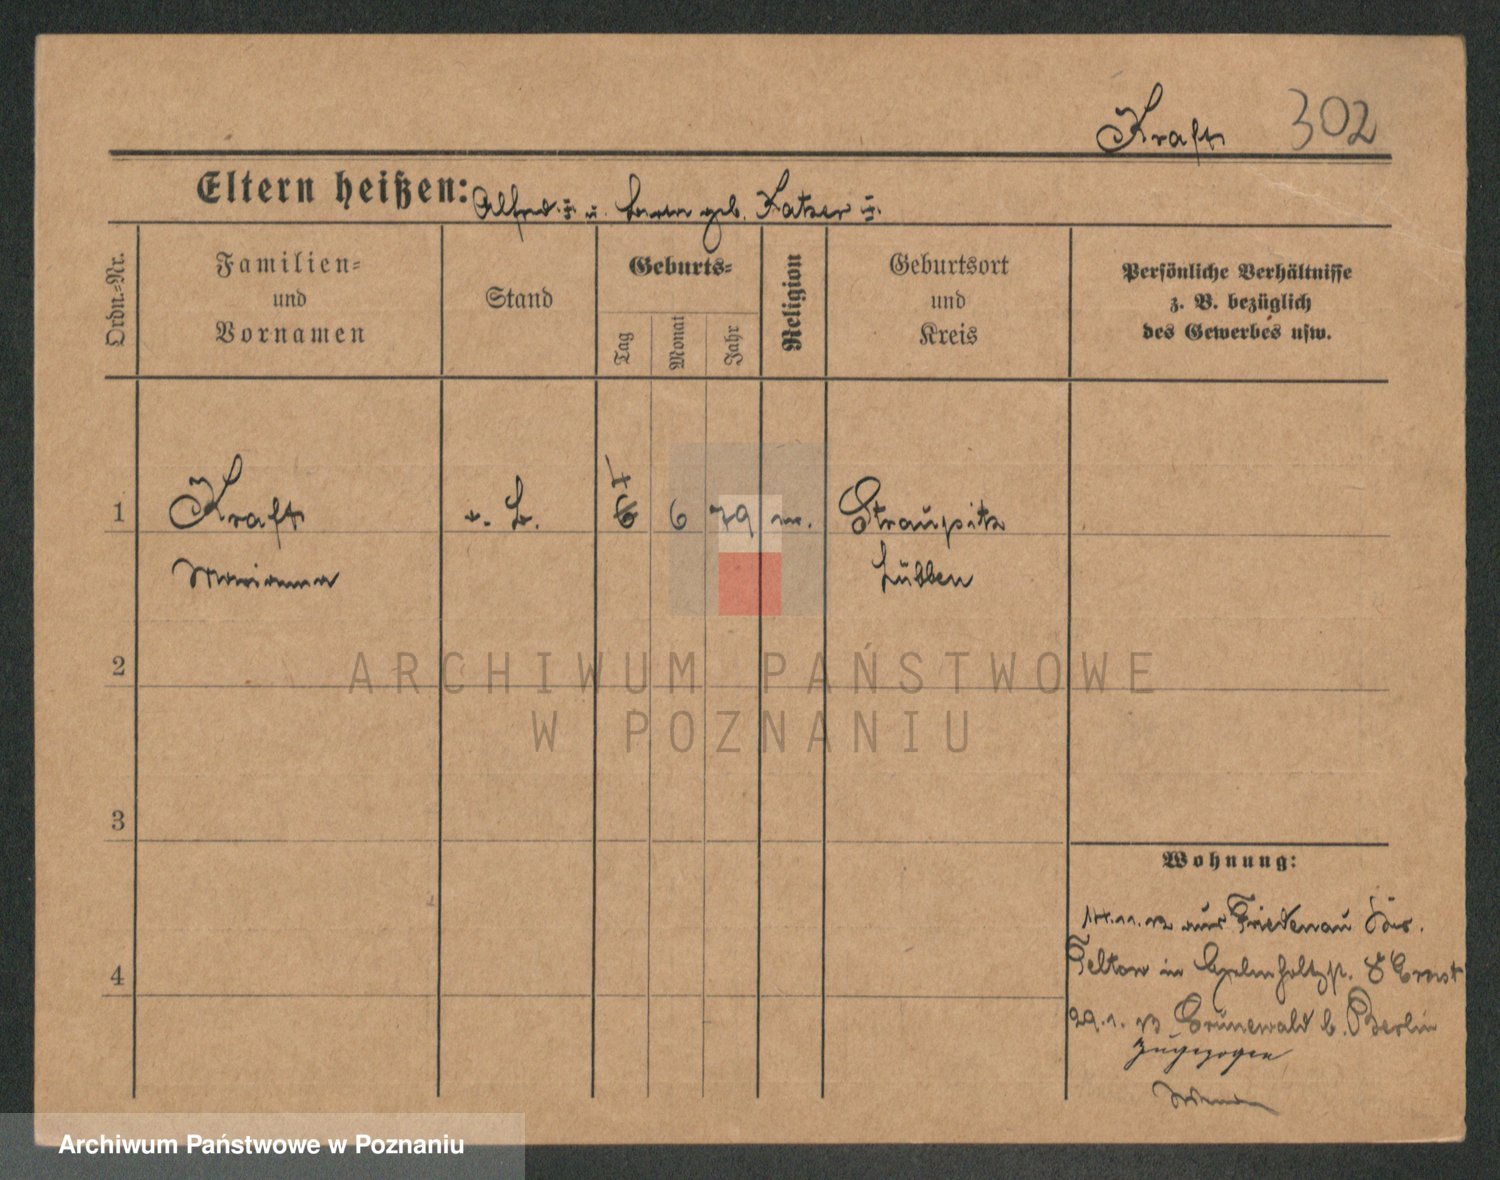 Kraft 302
Eltern heißen: Alfred u. geb. Katzer
Ordn.=Nr.
Familien=
und
Vornamen
Stand
Geburts=
Tag
Monat
Jahr
Religion
Geburtsort
und
Kreis
Persönliche Verhältnisse
z. B. bezüglich
des Gewerbes usw.
1 Kraft 6 79 Straupitz
Marianna Lübben
2
ARCHIWUM PAŃSTWOWE
W POZNANIU
3
Wohnung:
14.11.12 aus Friedenau
Teltow in 8 Ernst
4
29.1.13 Grunewald b. Berlin
zugezogen
Archiwum Państwowe w Poznaniu